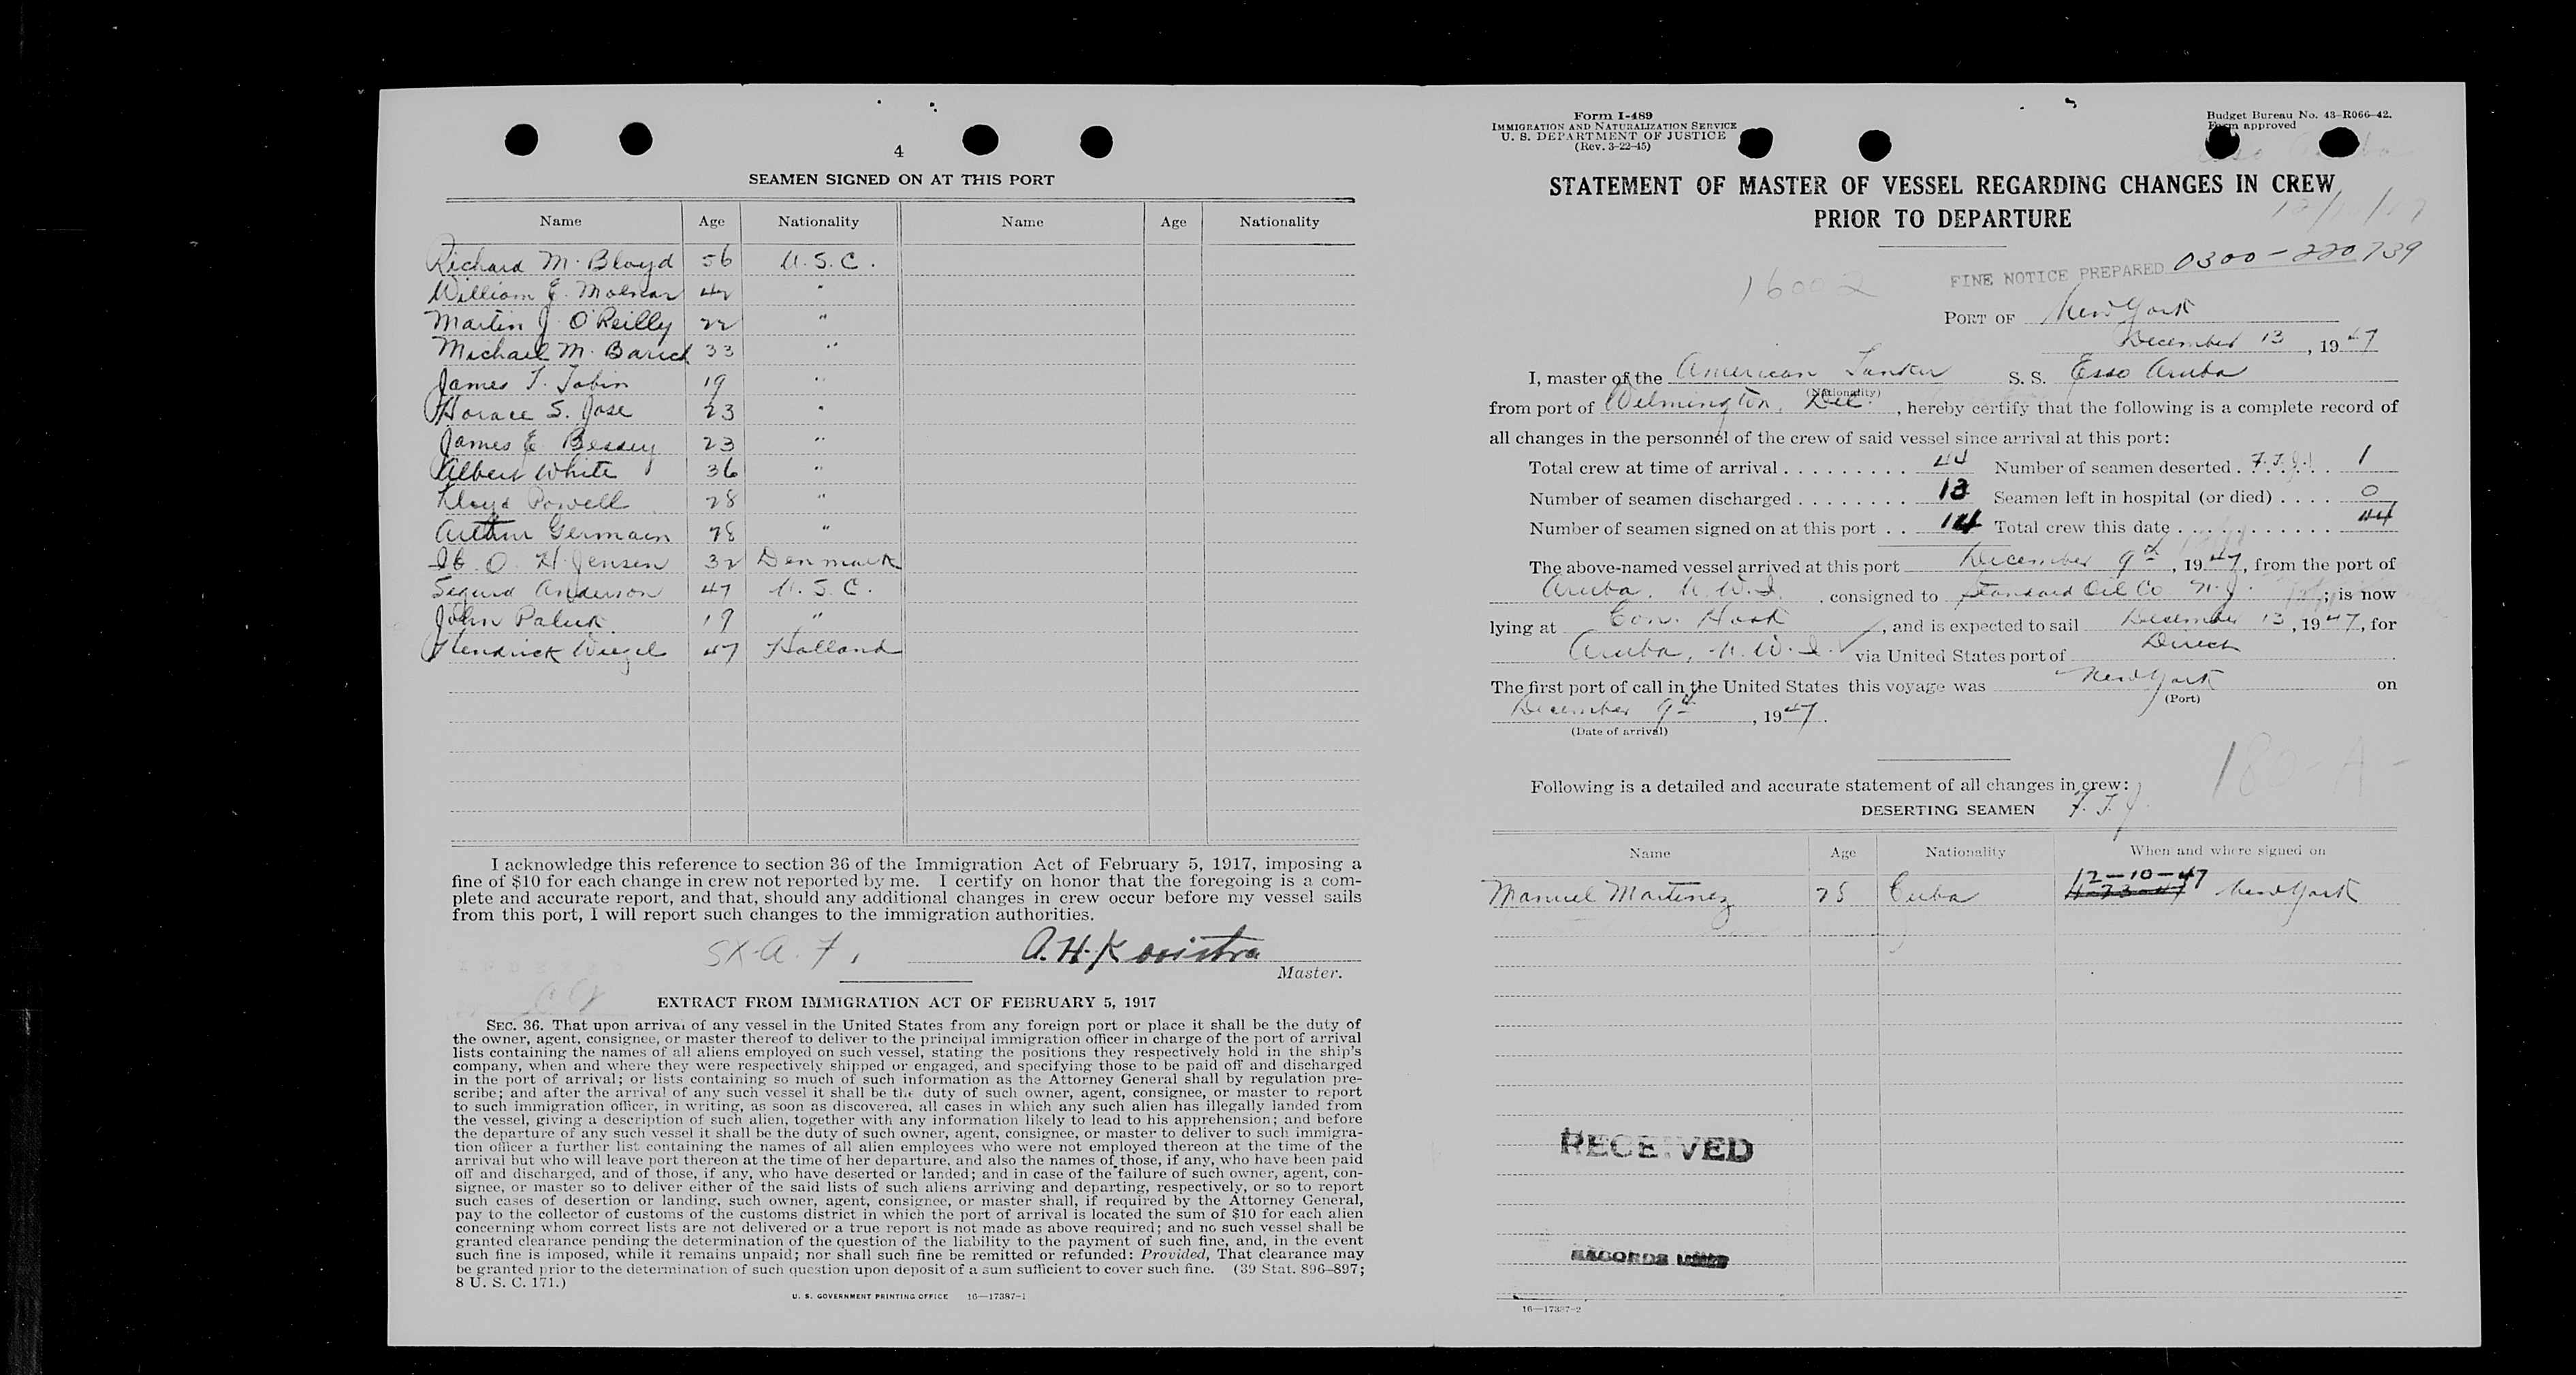 4
SEAMEN SIGNED ON AT THIS PORT
Name Age Nationality Name Age Nationality
Richard M. Bloyd 56 U.S.C.
William J. Molnar 42 "
Martin J. O'Reilly 22 "
Michael M. Barick 33 "
James T. Tobin 19 "
Horace S. Jose 23 "
James E. Bessey 23 "
Albert White 36 "
Lloyd Powell 28 "
Arthur Germain 28 "
Ib. O. H. Jensen 32 Denmark
Sigurd Anderson 47 U.S.C.
John Paluk 19 "
Hendrick Wiegel 47 Holland
I acknowledge this reference to section 36 of the Immigration Act of February 5, 1917, imposing a
fine of $10 for each change in crew not reported by me. I certify on honor that the foregoing is a com-
plete and accurate report, and that, should any additional changes in crew occur before my vessel sails
from this port, I will report such changes to the immigration authorities.
A. H. Kooistra
Master.
EXTRACT FROM IMMIGRATION ACT OF FEBRUARY 5, 1917
SEC. 36. That upon arrival of any vessel in the United States from any foreign port or place it shall be the duty of
the owner, agent, consignee, or master thereof to deliver to the principal immigration officer in charge of the port of arrival
lists containing the names of all aliens employed on such vessel, stating the positions they respectively hold in the ship's
company, when and where they were respectively shipped or engaged, and specifying those to be paid off and discharged
in the port of arrival; or lists containing so much of such information as the Attorney General shall by regulation pre-
scribe; and after the arrival of any such vessel it shall be the duty of such owner, agent, consignee, or master to report
to such immigration officer, in writing, as soon as discovered, all cases in which any such alien has illegally landed from
the vessel, giving a description of such alien, together with any information likely to lead to his apprehension; and before
the departure of any such vessel it shall be the duty of such owner, agent, consignee, or master to deliver to such immigra-
tion officer a further list containing the names of all alien employees who were not employed thereon at the time of the
arrival but who will leave port thereon at the time of her departure, and also the names of those, if any, who have been paid
off and discharged, and of those, if any, who have deserted or landed; and in case of the failure of such owner, agent, con-
signee, or master so to deliver either of the said lists of such aliens arriving and departing, respectively, or so to report
such cases of desertion or landing, such owner, agent, consignee, or master shall, if required by the Attorney General,
pay to the collector of customs of the customs district in which the port of arrival is located the sum of $10 for each alien
concerning whom correct lists are not delivered or a true report is not made as above required; and no such vessel shall be
granted clearance pending the determination of the question of the liability to the payment of such fine, and, in the event
such fine is imposed, while it remains unpaid; nor shall such fine be remitted or refunded: Provided, That clearance may
be granted prior to the determination of such question upon deposit of a sum sufficient to cover such fine. (39 Stat. 896–897;
8 U. S. C. 171.)
U. S. GOVERNMENT PRINTING OFFICE 16—17387-1
Form I-489
IMMIGRATION AND NATURALIZATION SERVICE
U. S. DEPARTMENT OF JUSTICE
(Rev. 3-22-45)
Budget Bureau No. 43-R066-42.
Form approved
STATEMENT OF MASTER OF VESSEL REGARDING CHANGES IN CREW
PRIOR TO DEPARTURE
16002
FINE NOTICE PREPARED 0300-220739
PORT OF New York
December 13, 1947
I, master of the American Tanker S. S. Esso Aruba
(Nationality)
from port of Wilmington, Del., hereby certify that the following is a complete record of
all changes in the personnel of the crew of said vessel since arrival at this port:
Total crew at time of arrival 44 Number of seamen deserted F.T.J. 1
Number of seamen discharged 13 Seamen left in hospital (or died) 0
Number of seamen signed on at this port 14 Total crew this date 44
The above-named vessel arrived at this port December 9th, 1947, from the port of
Aruba, N.W.I., consigned to Standard Oil Co N.J.; is now
lying at Con. Hook, and is expected to sail December 13, 1947, for
Aruba, N.W.I. via United States port of Direct
The first port of call in the United States this voyage was New York on
(Port)
December 9th, 1947.
(Date of arrival)
180-A-
Following is a detailed and accurate statement of all changes in crew:
DESERTING SEAMEN F.T.J.
Name Age Nationality When and where signed on
12-10-47
Manuel Martinez 25 Cuba New York
RECEIVED
RECORDS UNIT
16—17387-2